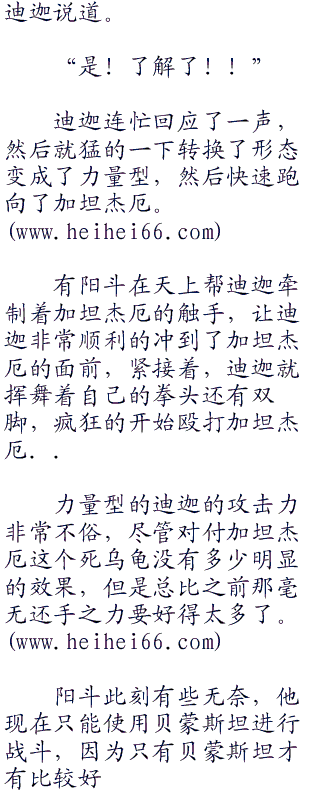 迪迦说道。
“是！了解了！！”
迪迦连忙回应了一声，
然后就猛的一下转换了形态
变成了力量型，然后快速跑
向了加坦杰厄。
(www.heihei66.com)
有阳斗在天上帮迪迦牵
制着加坦杰厄的触手，让迪
迦非常顺利的冲到了加坦杰
厄的面前，紧接着，迪迦就
挥舞着自己的拳头还有双
脚，疯狂的开始殴打加坦杰
厄．．
力量型的迪迦的攻击力
非常不俗，尽管对付加坦杰
厄这个死乌龟没有多少明显
的效果，但是总比之前那毫
无还手之力要好得太多了。
(www.heihei66.com)
阳斗此刻有些无奈，他
现在只能使用贝蒙斯坦进行
战斗，因为只有贝蒙斯坦才
有比较好